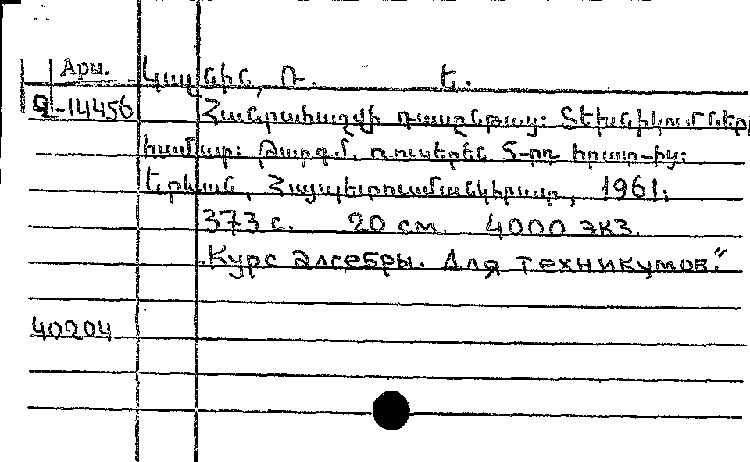 Арм. Կալնին, Ռ. Ե.
Q-14456 Հանրահաշվի դասընթաց: Տեխնիկումների
համար: Թարգմ. ռուսերեն 5-րդ հրատ-ից:
Երևան, Հայպետուսմանկհրատ, 1961.
373 с. 20 см. 4000 экз.
„Курс алгебры. Для техникумов."
40204